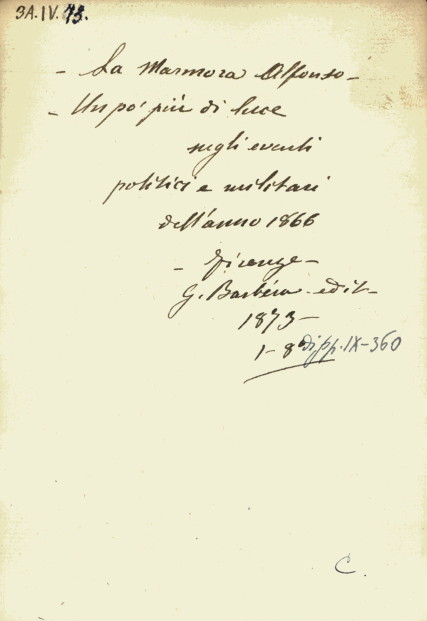 3A.IV.13.
- La Marmora Alfonso -
- Un po' più di luce
sugli eventi
politici e militari
dell'anno 1866
- Firenze -
G. Barbèra - edit -
1873 -
1 - 8° di pp. IX-360
C.